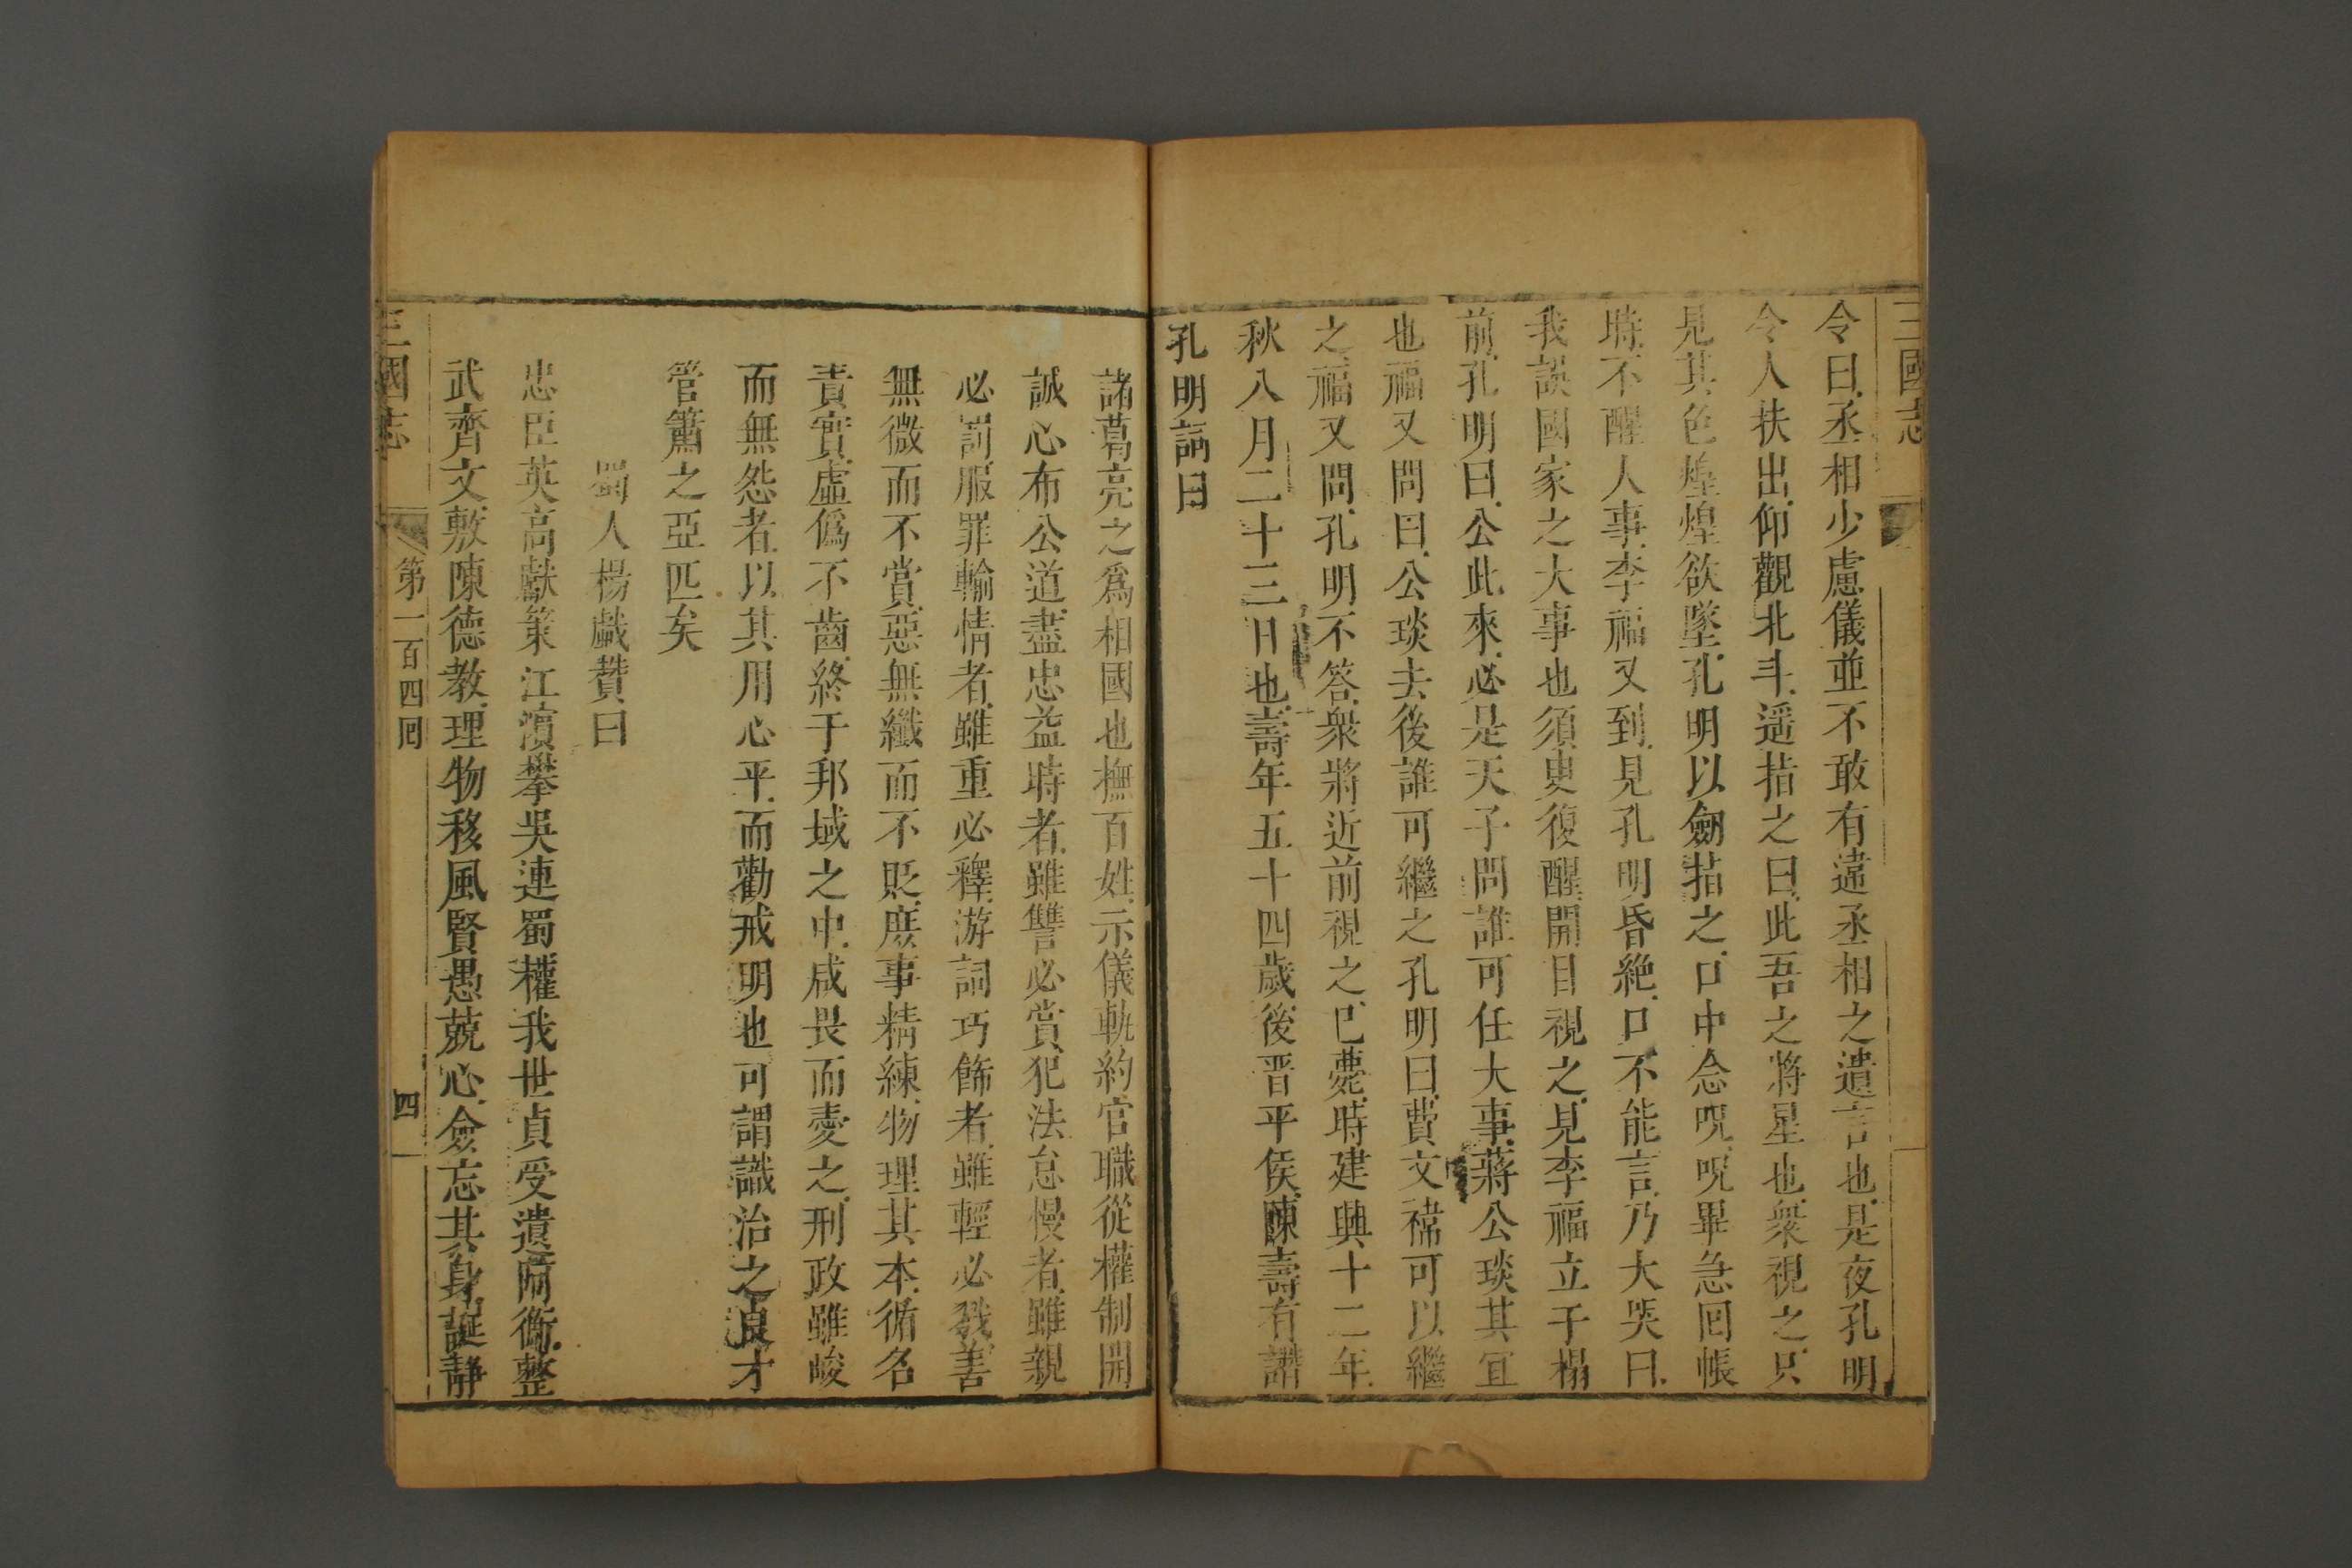 三國志
令曰丞相少慮儀並不敢有違丞相之遺言也是夜孔明
令人扶出仰觀北斗遥指之曰此吾之將星也衆視之只
見其色煌煌欲墜孔明以劍指之口中念呪呪畢急回帳
時不醒人事李福又到見孔明昏絶口不能言乃大哭曰
我誤國家之大事也須臾復醒開目視之見李福立于榻
前孔明曰公此來必是天子問誰可任大事蔣公琰其宜
也福又問曰公琰去後誰可繼之孔明曰費文褘可以繼
之福又問孔明不答衆將近前視之已薨時建興十二年
秋八月二十三日也壽年五十四歲後晋平侯陳壽有讃
孔明詞曰
諸葛亮之爲相國也撫百姓示儀軌約官職從權制開
誠心布公道盡忠益時者雖讐必賞犯法怠慢者雖親
必罰服罪輸情者雖重必釋游詞巧飾者雖輕必戮善
無微而不賞惡無纖而不貶庶事精練物理其本循名
責實虛僞不齒終于邦域之中咸畏而愛之刑政雖峻
而無怨者以其用心平而勸戒明也可謂識治之良才
管簫之亞匹矣
蜀人楊戲賛曰
忠臣英高獻策江濵攀吳連蜀權我世貞受遺阿衡整
武齊文敷陳德教理物移風賢愚兢心僉忘其身誕靜
三國志
第一百四囘
四